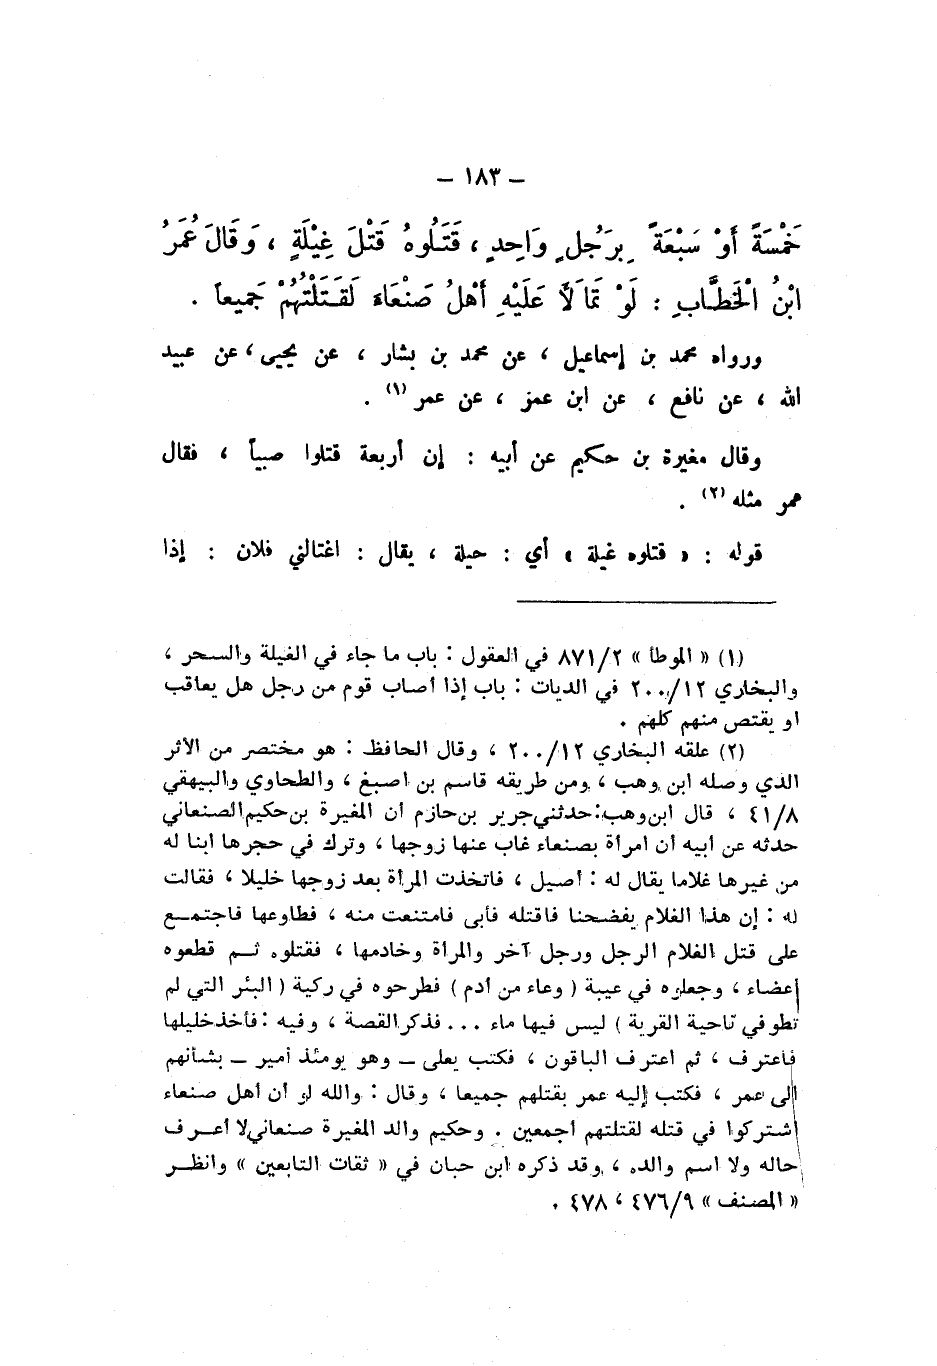 – ١٨٣ –
خَمْسَةً أَوْ سَبْعَةً بِرَجُلٍ وَاحِدٍ ، قَتَلُوهُ قَتْلَ غِيْلَةٍ ، وَقَالَ عُمَرُ
ابْنُ الْخَطَّابِ : لَوْ تَمَالَأَ عَلَيْهِ أَهْلُ صَنْعَاءَ لَقَتَلْتُهُمْ جَمِيعاً .
ورواه محمد بن إسماعيل ، عن محمد بن بشار ، عن يحيى ، عن عبيد
الله ، عن نافع ، عن ابن عمر ، عن عمر (١) .
وقال مغيرة بن حكيم عن أبيه : إن أربعة قتلوا صبياً ، فقال
عمر مثله (٢) .
قوله : « قتلوه غيلة » أي : حيلة ، يقال : اغتالني فلان : إذا
(١) « الموطأ » ٨٧١/٢ في العقول : باب ما جاء في الغيلة والسحر ،
والبخاري ٢٠٠/١٢ في الديات : باب إذا أصاب قوم من رجل هل يعاقب
او يقتص منهم كلهم .
(٢) علقه البخاري ٢٠٠/١٢ ، وقال الحافظ : هو مختصر من الأثر
الذي وصله ابن وهب ، ومن طريقه قاسم بن اصبغ ، والطحاوي والبيهقي
٤١/٨ ، قال ابن وهب : حدثني جرير بن حازم أن المغيرة بن حكيم الصنعاني
حدثه عن أبيه أن امرأة بصنعاء غاب عنها زوجها ، وترك في حجرها ابنا له
من غيرها غلاما يقال له : أصيل ، فاتخذت المرأة بعد زوجها خليلا ، فقالت
له : إن هذا الغلام يفضحنا فاقتله فأبى فامتنعت منه ، فطاوعها فاجتمع
على قتل الغلام الرجل ورجل آخر والمرأة وخادمها ، فقتلوه ثم قطعوه
أعضاء ، وجعلوه في عيبة ( وعاء من أدم ) فطرحوه في ركية ( البئر التي لم
تطو في ناحية القرية ) ليس فيها ماء ... فذكر القصة ، وفيه : فأخذ خليلها
فاعترف ، ثم اعترف الباقون ، فكتب يعلى – وهو يومئذ أمير – بشأنهم
إلى عمر ، فكتب إليه عمر بقتلهم جميعا ، وقال : والله لو أن أهل صنعاء
اشتركوا في قتله لقتلتهم أجمعين . وحكيم والد المغيرة صنعاني لا أعرف
حاله ولا اسم والده ، وقد ذكره ابن حبان في « ثقات التابعين » وانظر
« المصنف » ٤٧٦/٩ ، ٤٧٨ .